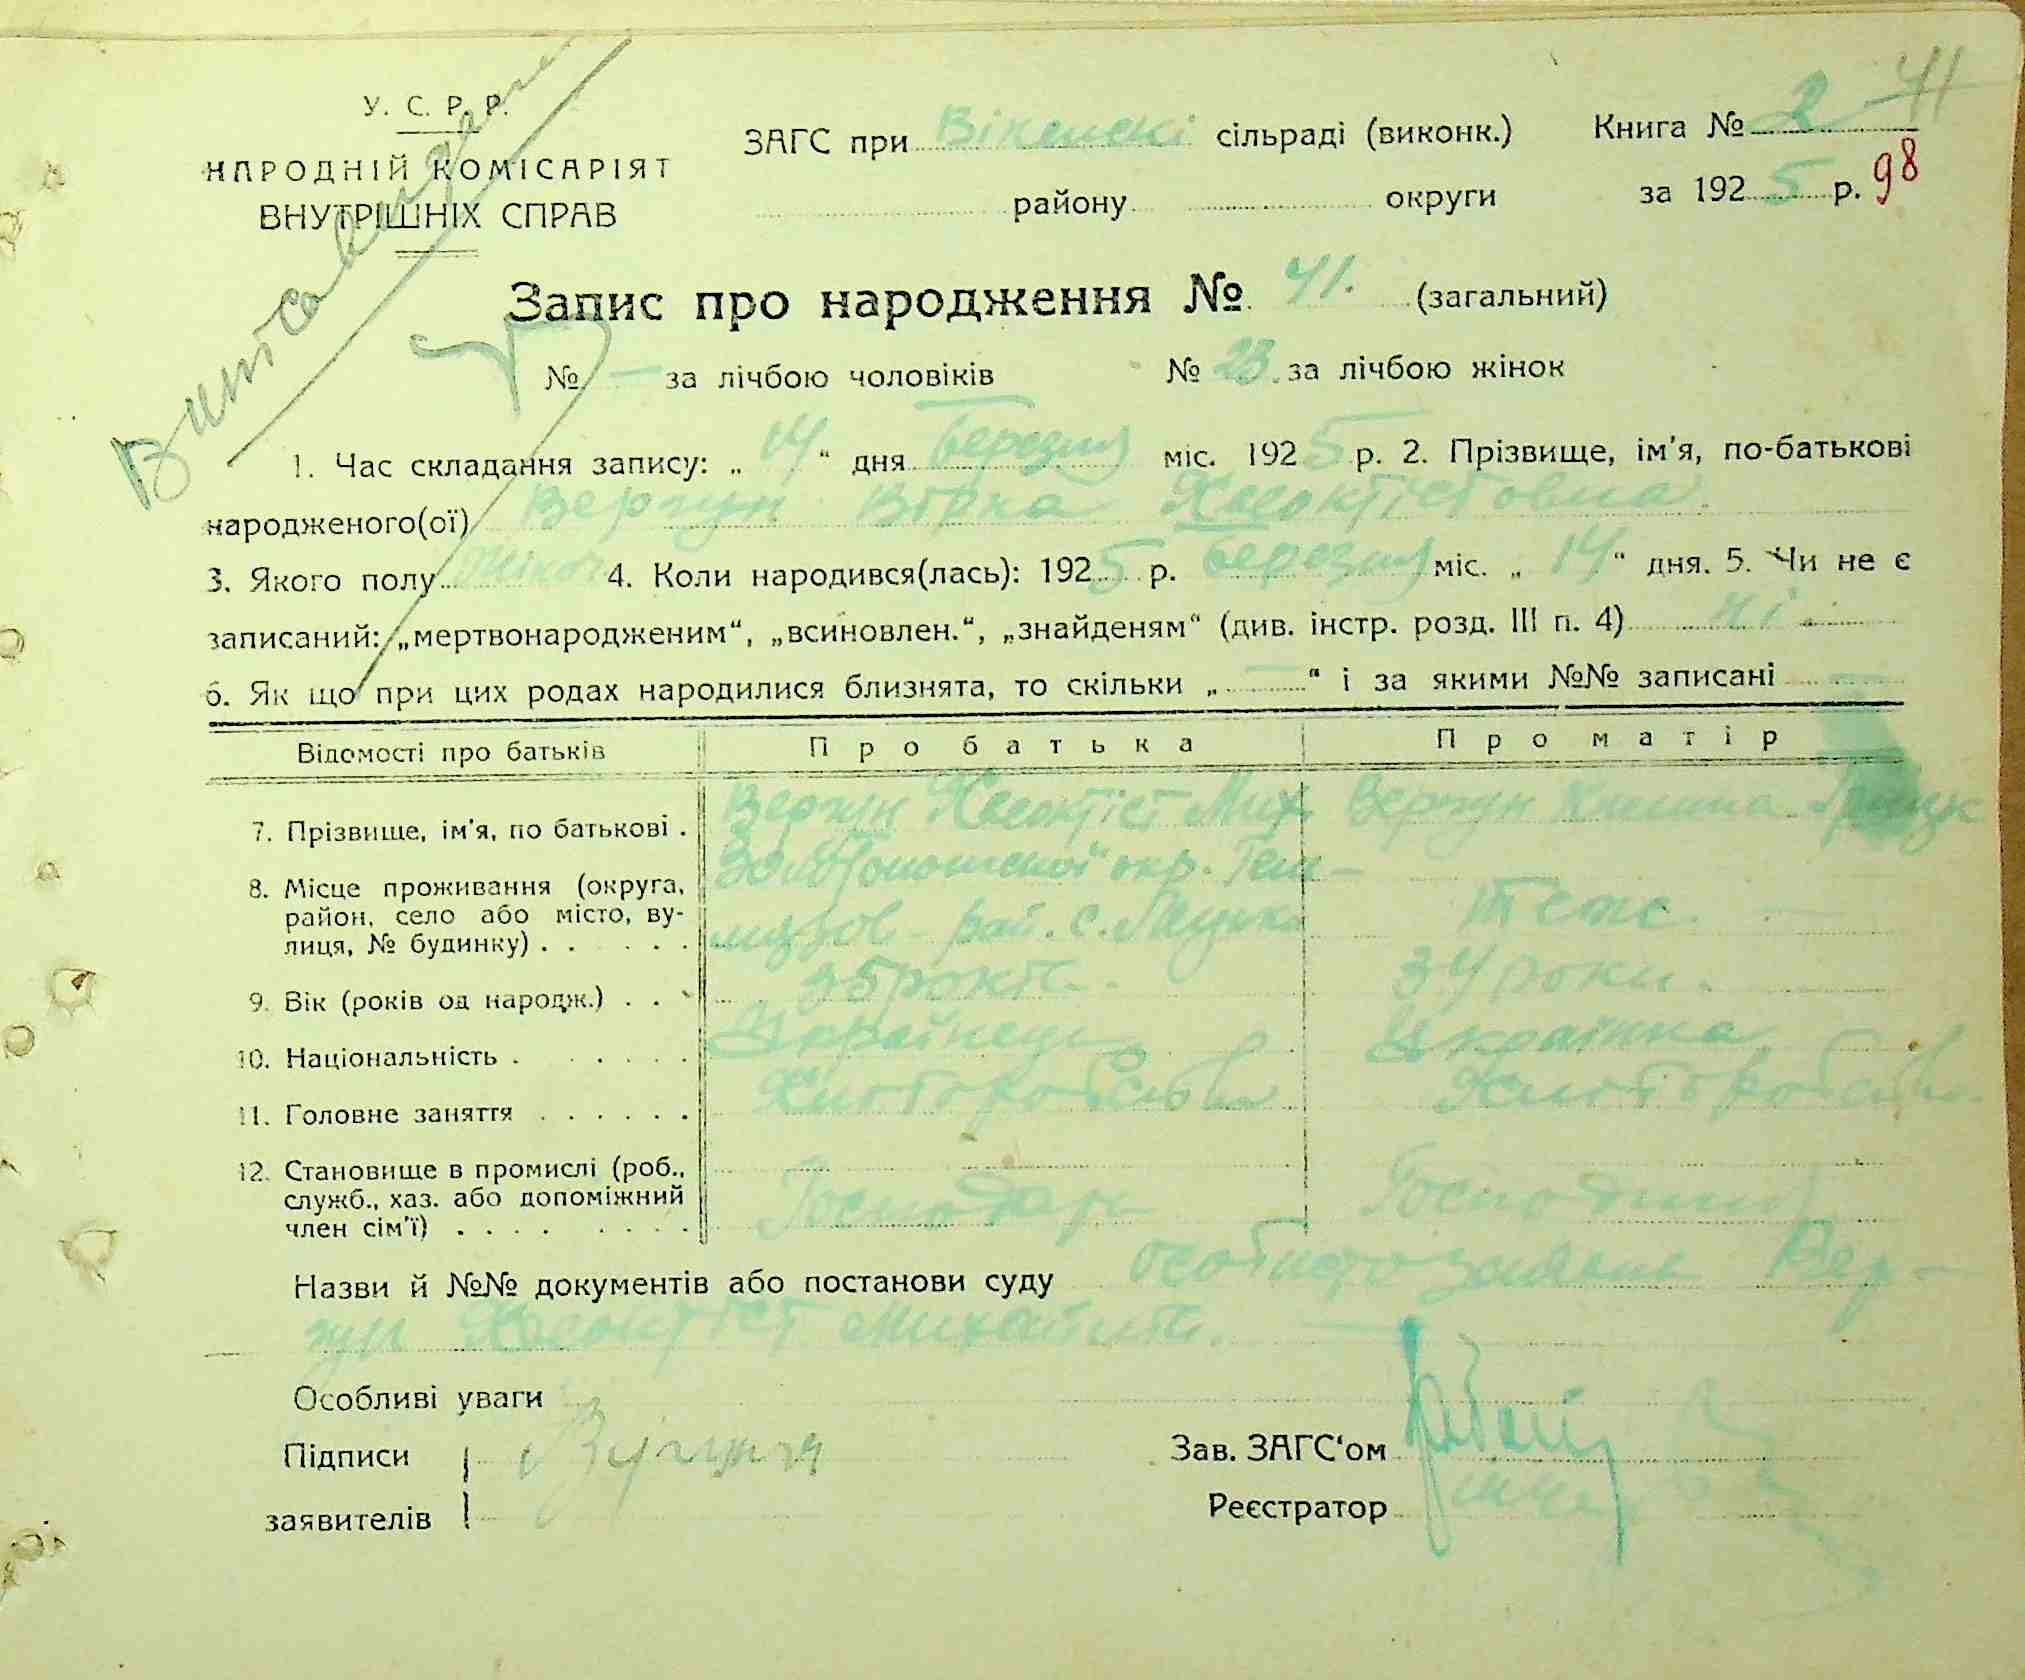 У. С. Р. Р.
НАРОДНІЙ КОМІСАРІЯТ
ВНУТРІШНІХ СПРАВ
ЗАГС при сільраді (виконк.)
Книга № 2 41
району округи
за 1925 р. 98
Запис про народження № 41. (загальний)
№ — за лічбою чоловіків № 23. за лічбою жінок
1. Час складання запису: „ 14 “ дня березня міс. 1925 р. 2. Прізвище, ім'я, по-батькові
народженого(ої) Вергун Вірка
3. Якого полу Жіноч 4. Коли народився(лась): 1925 р. березня міс. „ 14 “ дня. 5. Чи не є
записаний: „мертвонародженим“, „всиновлен.“, „знайденям“ (див. інстр. розд. III п. 4) ні.
6. Як що при цих родах народилися близнята, то скільки „ — “ і за якими №№ записані —
Відомості про батьків Про батька Про матір
7. Прізвище, ім'я, по батькові . Вергун Мих. Вергун
8. Місце проживання (округа, район, село або місто, вулиця, № будинку) . . окр. рай. с. Теж. —
9. Вік (років од народж.) . . 35 років. 34 роки.
10. Національність . Українець Українка
11. Головне заняття Хлібороб Хлібороб
12. Становище в промислі (роб., служб., хаз. або допоміжний член сім'ї) Господар Господиня
Назви й №№ документів або постанови суду особиста заява Вер-
гун
Особливі уваги
Підписи
Зав. ЗАГС‘ом
заявителів
Реєстратор